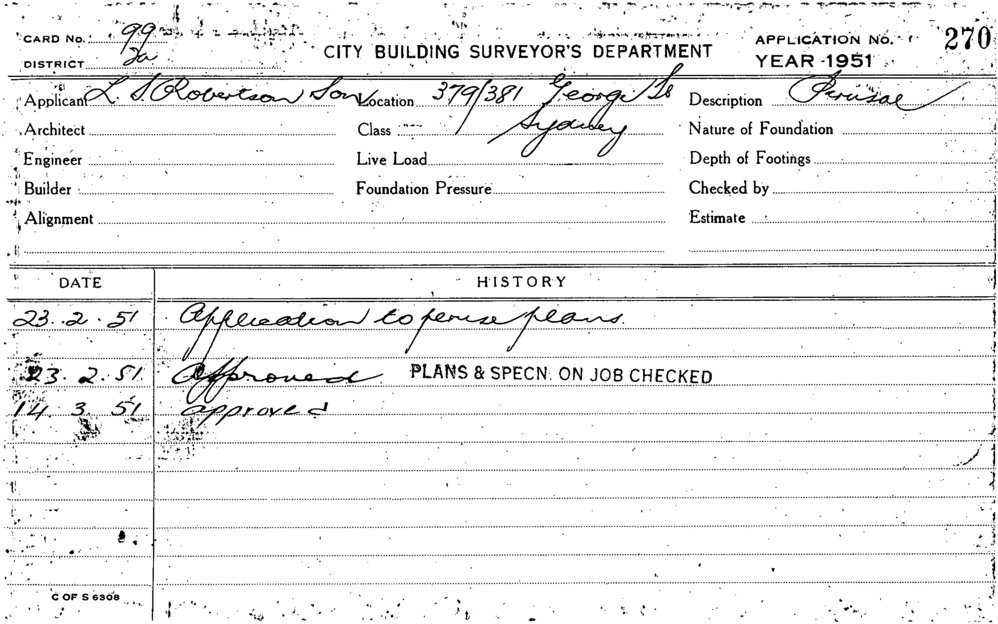 CARD No. 99
CITY BUILDING SURVEYOR'S DEPARTMENT
APPLICATION No. 270
DISTRICT 2a
YEAR 1951
Applicant L S Robertson Son Location 379/381 George St Description Perusal
Architect Class Sydney Nature of Foundation
Engineer Live Load Depth of Footings
Builder Foundation Pressure Checked by
Alignment Estimate
DATE HISTORY
23. 2. 51 Application to peruse plans.
23. 2. 51. Approved PLANS & SPECN. ON JOB CHECKED
14 3 51 approved
C OF S 6308